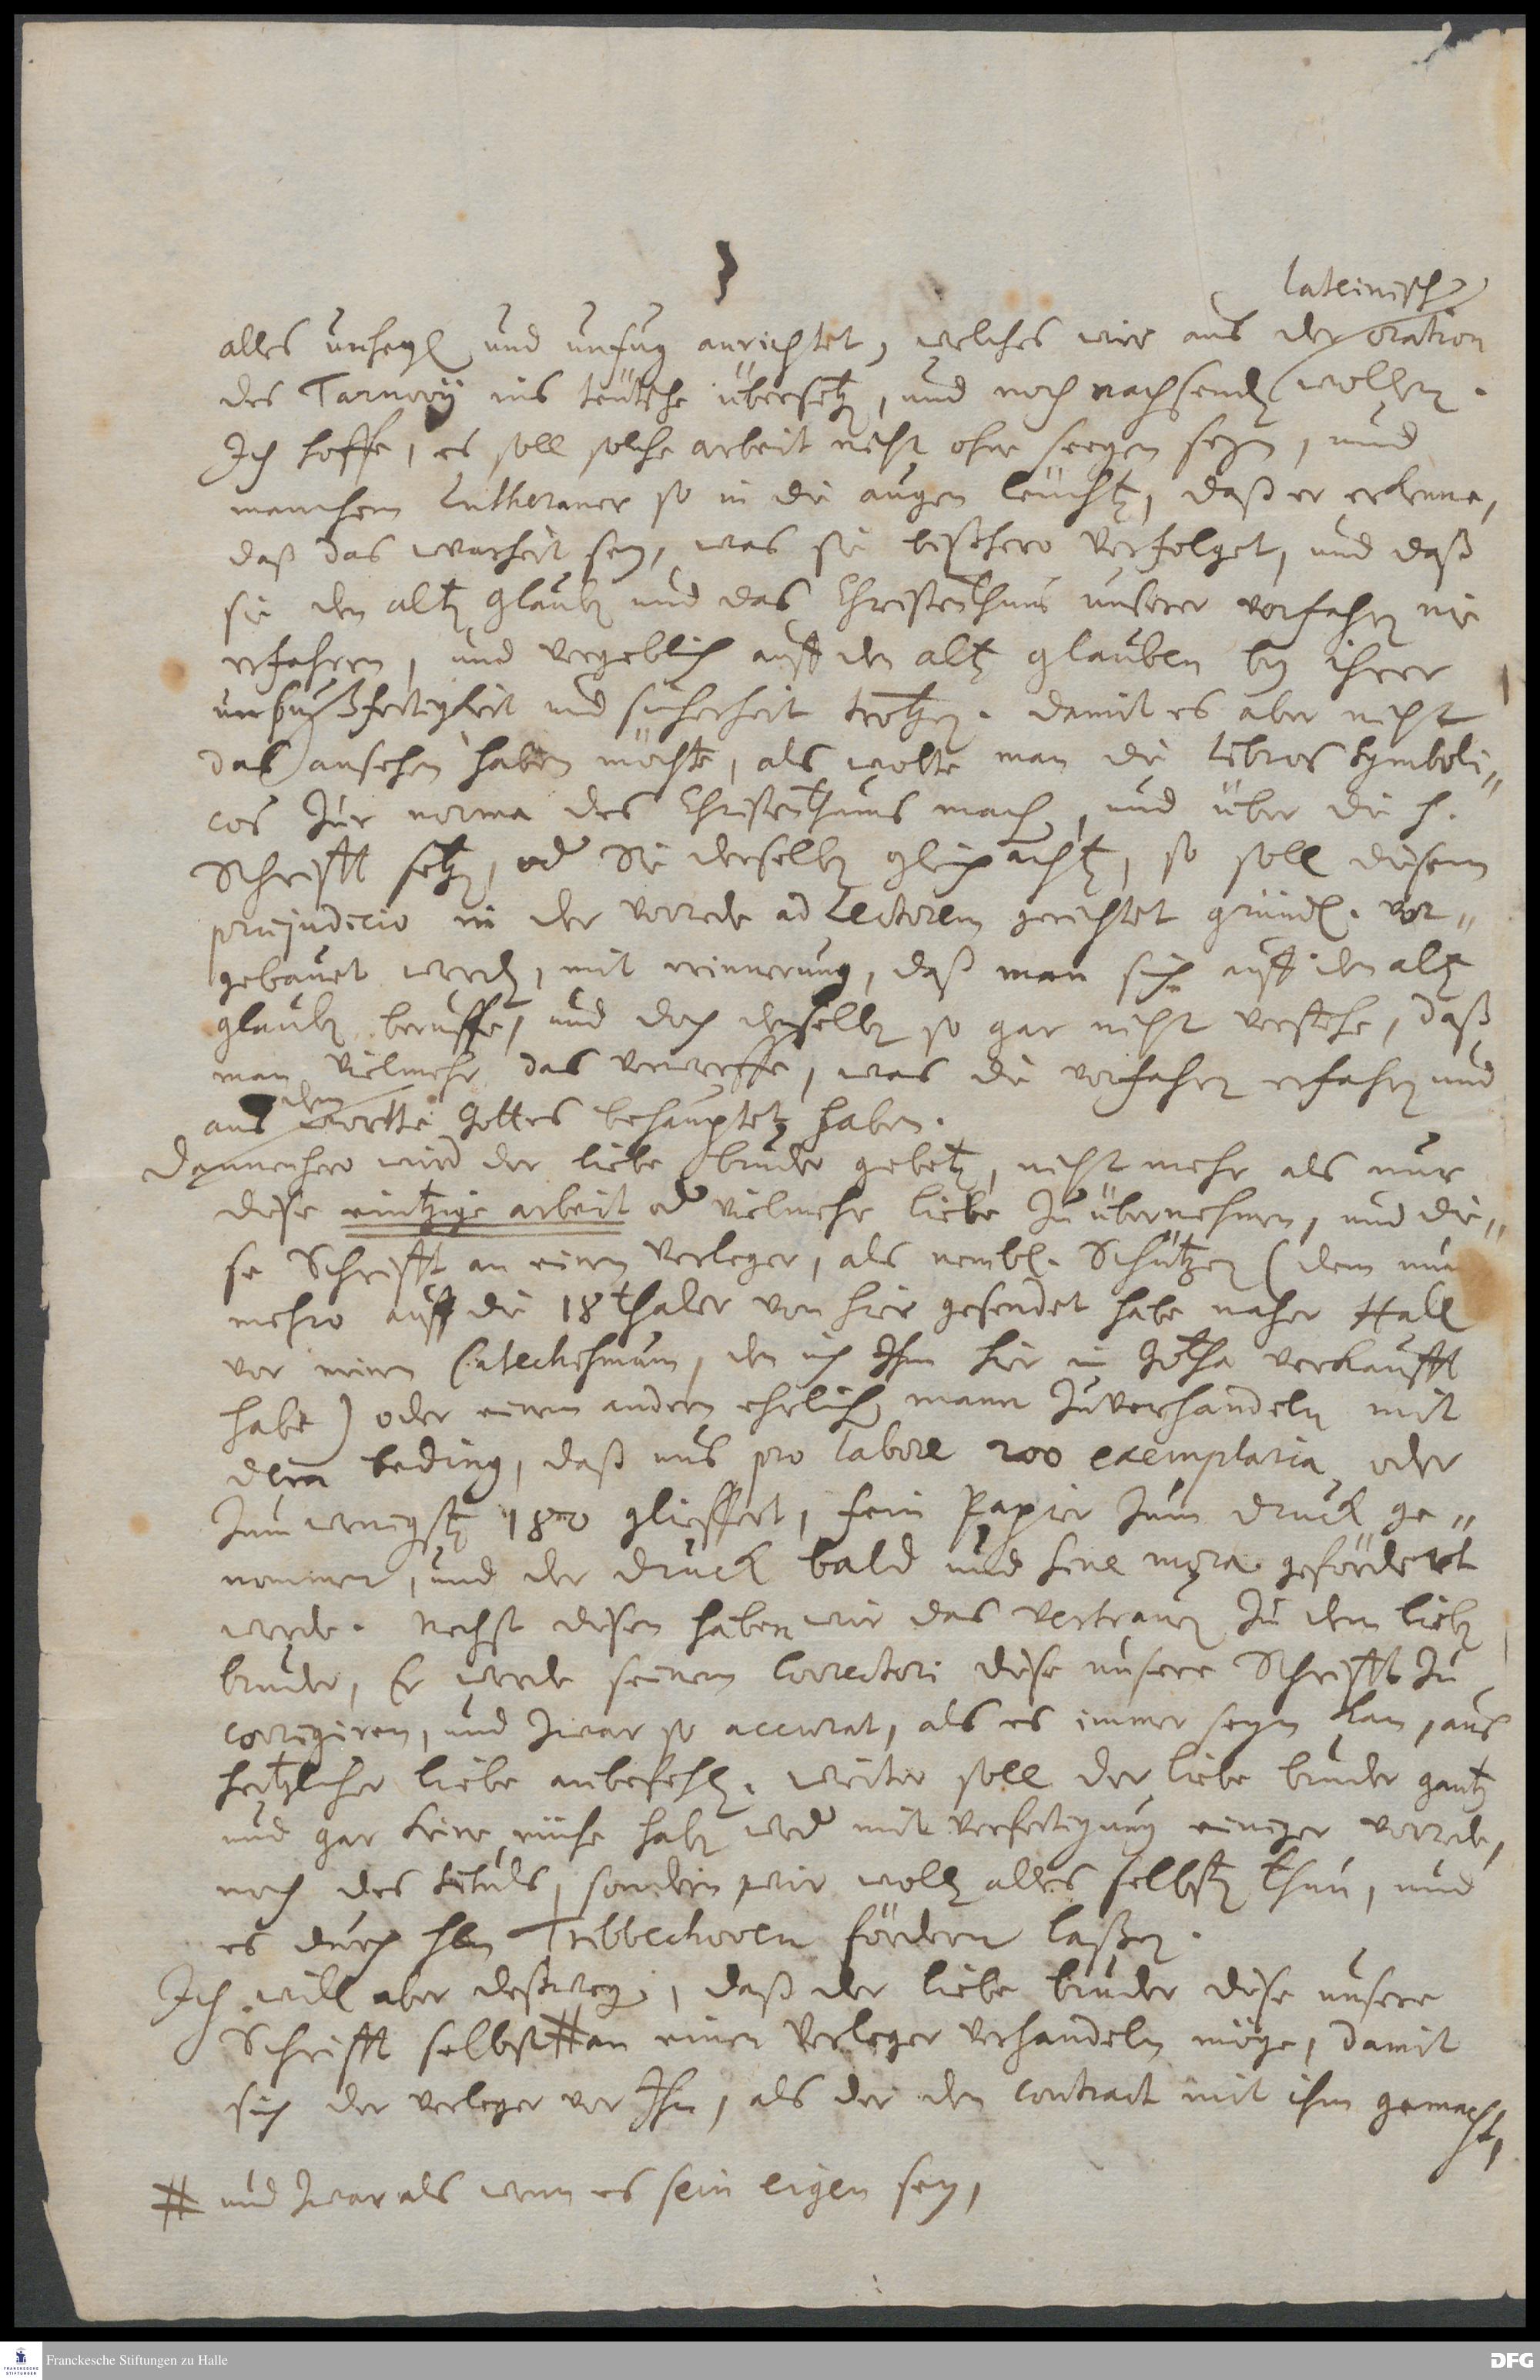 lateinisch
alles unheyl und unfug anrichtet, welches wir aus der oration
des Tarnovij ins teütsche übersetzt, und noch nachsenden wollen.
Ich hoffe, es soll solche arbeit nicht ohne seegen seyn, und
manchem Lutheraner so in die augen leüchten, daß er erkenne,
daß das warheit sey, was sie bißhero verfolget, und daß
sie den alten glauben und das Christenthum unserer vorfahren nie
erfahren, und vergeblich auff den alten glauben bey ihrer
unbußfertigkeit und sicherheit trotzen. damit es aber nicht
das ansehen haben möchte, als wolte man die libros Symboli„
cos zur norma des Christenthums machen, und über die h.
Schrifft setzen, oder Sie derselben gleich achten, so soll diesem
praejudicio in der vorrede ad Lectorem gerichtet gründl. vor„
gebauet werden, mit erinnerung, daß man sich auff den alten
glauben beruffe, und doch denselben so gar nicht verstehe, daß
man vielmehr das verwerffe, was die vorfahren erfahren und
aus dem wortte Gottes behauptet haben.
Dannenhero wird der liebe bruder gebeten, nicht mehr als nur
diese eintzige arbeit oder vielmehr liebe zu übernehmen, und die„
se Schrifft an einen Verleger, als nembl. Schützen (dem nun
mehro auff die 18 thaler von hier gesendet habe naher Hall
vor meinen Catechismum, den ich Ihm hier in Gotha verkaufft
habe) oder einem andern ehrlichen mann zu verhandeln mit
dem beding, daß uns pro labore 200 exemplaria oder
zum wenigsten 180 glieffert, fein Papier zum druck ge„
nommen, und der druck bald und sine mora gefördert
werde. Nechst diesen haben wir das vertrauen zu dem lieben
bruder, Er werde seinem Correctori diese unsere Schrifft zu
corrigiren, und zwar so accurat, als es immer seyn kan, aus
hertzlicher liebe anbefehlen. weiter soll der liebe bruder gantz
und gar keine mühe haben weder mit verfertigung einiger vorrede,
noch des tituls, sondern wir wollen alles selbsten thun, und
es durch hln Tribbechoven fördern laßen.
Ich will aber deßwegen, daß der liebe bruder diese unsere
Schrifft selbst # an einen Verleger verhandeln möge, damit
sich der verleger vor Ihn, als der den contract mit ihm gemacht,
# und zwar als wenn es sein eigen sey,
Franckesche Stiftungen zu Halle
FRANCKESCHE STIFTUNGEN
DFG